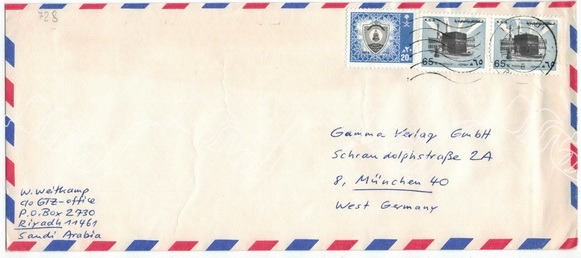 728
20
65 ٦٥
65 ٦٥
Gamma Verlag GmbH
Schraudolphstraße 2A
8, München 40
West Germany
W. Weitkamp
c/o GTZ-office
P.O.Box 2730
Riyadh 11461
Saudi Arabia